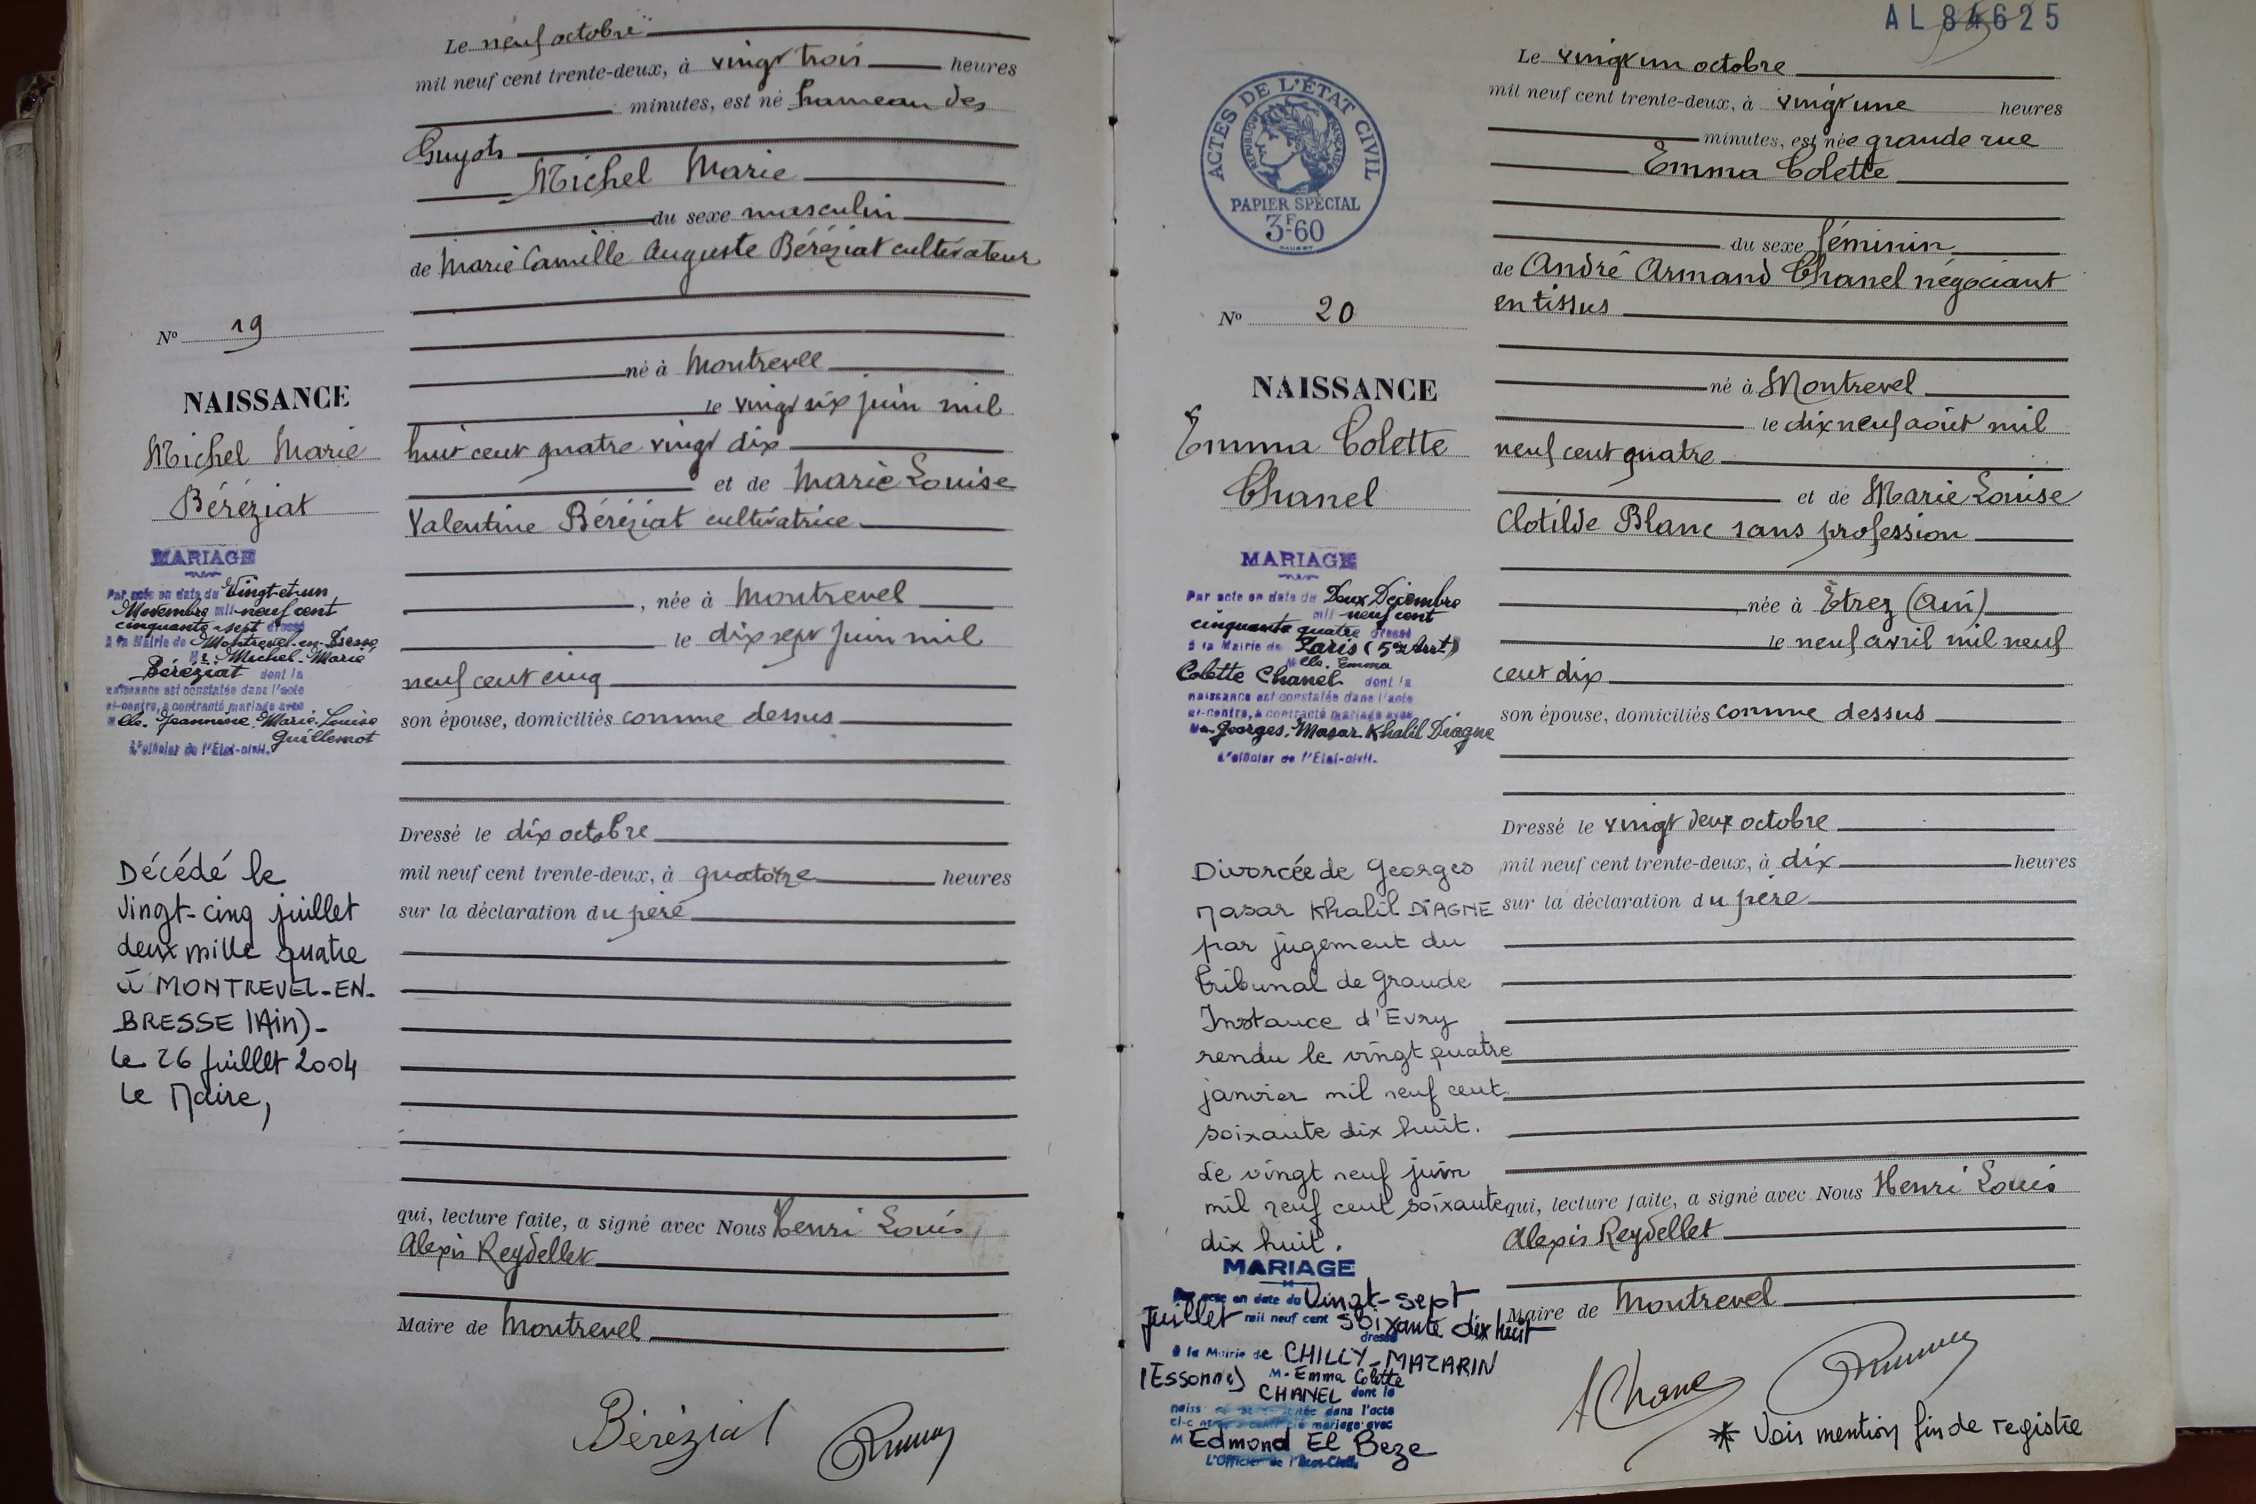 Le neuf octobre
mil neuf cent trente-deux, à vingt trois heures
minutes, est né hameau des
Guyots
Michel Marie
du sexe masculin
de Marie Camille Auguste Béréziat cultivateur
né à Montrevel
le vingt six juin mil
huit cent quatre vingt dix
et de Marie Louise
Valentine Béréziat cultivatrice
, née à Montrevel
le dix sept juin mil
neuf cent cinq
son épouse, domiciliés comme dessus
Dressé le dix octobre
mil neuf cent trente-deux, à quatorze heures
sur la déclaration du père
qui, lecture faite, a signé avec Nous Henri Louis
Alexis Reydellet
Maire de Montrevel
Béréziat
No 19
NAISSANCE
Michel Marie
Béréziat
MARIAGE
Par acte en date du Vingt-et-un
Novembre mil neuf cent
cinquante-sept dressé
à la Mairie de Montrevel-en-Bresse
Mr. Michel-Marie
Béréziat dont la
naissance est constatée dans l'acte
ci-contre, a contracté mariage avec
Melle. Jeannine-Marie-Louise
Guillemot
L'officier de l'Etat-civil.
Décédé le
vingt-cinq juillet
deux mille quatre
à MONTREVEL-EN-
BRESSE (Ain)-
le 26 juillet 2004
Le Maire,
AL 84625
Le vingt un octobre
mil neuf cent trente-deux, à vingt une heures
minutes, est née grande rue
Emma Colette
du sexe féminin
de André Armand Chanel négociant
en tissus
né à Montrevel
le dix neuf août mil
neuf cent quatre
et de Marie Louise
Clotilde Blanc sans profession
née à Étrez (Ain)
le neuf avril mil neuf
cent dix
son épouse, domiciliés comme dessus
Dressé le vingt deux octobre
mil neuf cent trente-deux, à dix heures
sur la déclaration du père
qui, lecture faite, a signé avec Nous Henri Louis
Alexis Reydellet
Maire de Montrevel
AChanel
* Voir mention fin de registre
ACTES DE L'ÉTAT CIVIL
RÉPUBLIQUE FRANÇAISE
PAPIER SPÉCIAL
3F60
No 20
NAISSANCE
Emma Colette
Chanel
MARIAGE
Par acte en date du Deux Décembre
mil neuf cent
cinquante quatre dressé
à la Mairie de Paris (5me Arrt)
Melle. Emma
Colette Chanel dont la
naissance est constatée dans l'acte
ci-contre, a contracté mariage avec
Mr. Georges-Masar Khalil Diagne
L'officier de l'Etat-civil.
Divorcée de Georges
Masar Khalil DIAGNE
par jugement du
Tribunal de Grande
Instance d'Evry
rendu le vingt quatre
janvier mil neuf cent
soixante dix huit.
Le vingt neuf juin
mil neuf cent soixante
dix huit.
MARIAGE
Par acte en date du Vingt-sept
Juillet mil neuf cent soixante dix huit
dressé
à la Mairie de CHILLY-MAZARIN
(Essonne) M. Emma Colette
CHANEL dont la
naissance est constatée dans l'acte
ci-contre a contracté mariage avec
M Edmond El Beze
L'Officier de l'Etat-Civil